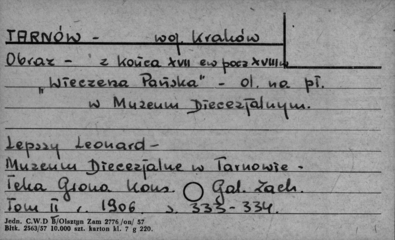 TARNÓW - woj. Kraków
Obraz - z końca XVII ew pocz XVIII w
„Wieczerza Pańska" - ol. na pł.
w Muzeum Diecezjalnym.
Lepszy Leonard -
Muzeum Diecezjalne w Tarnowie -
Teka Grona Kons. Gal. Zach.
Tom II r. 1906 s. 333-334.
Jedn. C.W.D B/Olsztyn Zam 2776/on/57
Bltk. 2563/57 10.000 szt. karton kl. 7 g 220.